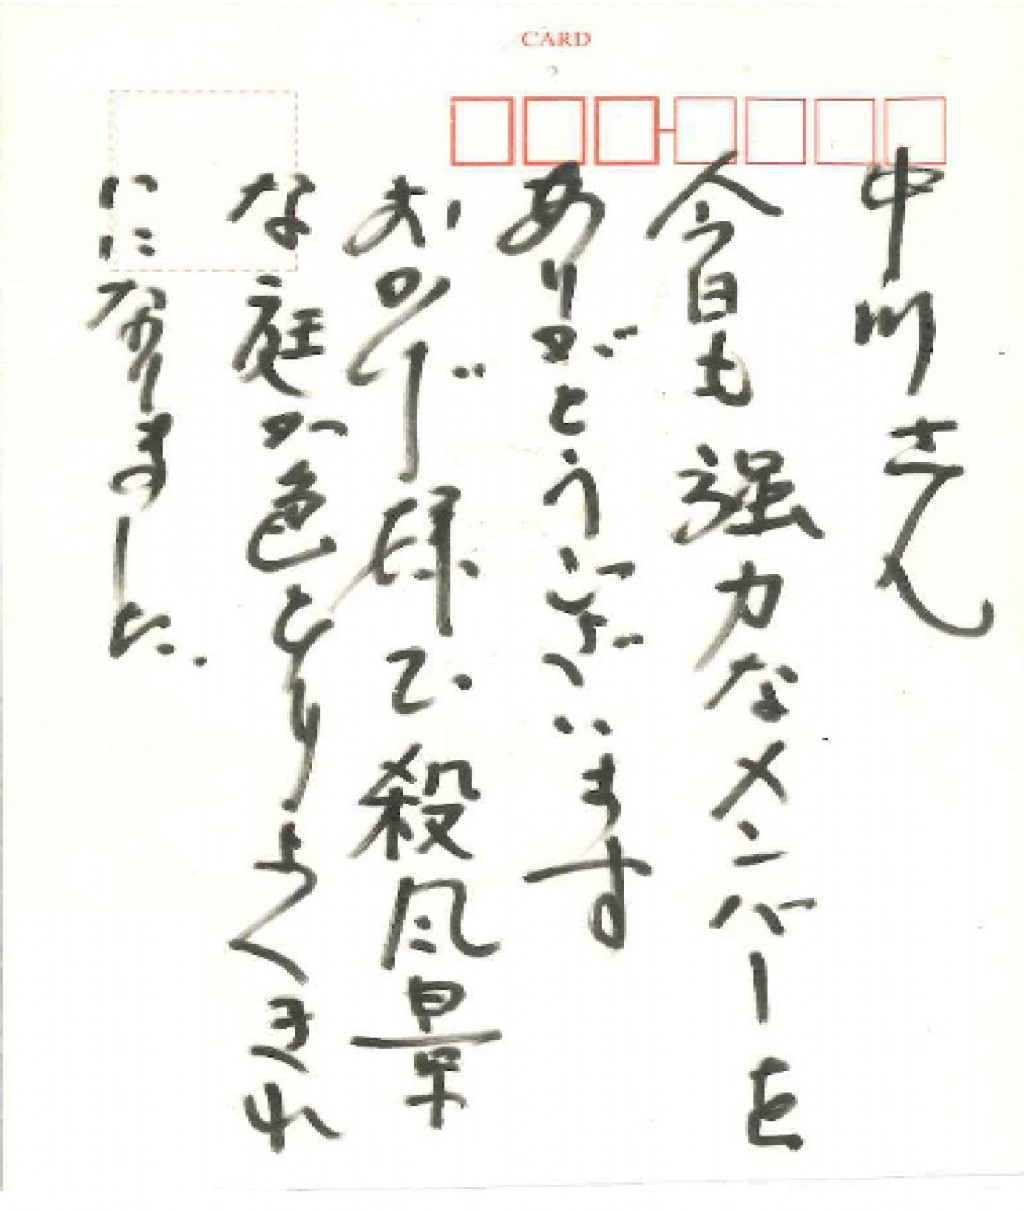 CARD
中川さん
今日も強力なメンバーを
ありがとうございます
おかげ様で殺風景
な庭が色とりよくきれ
いになりました.